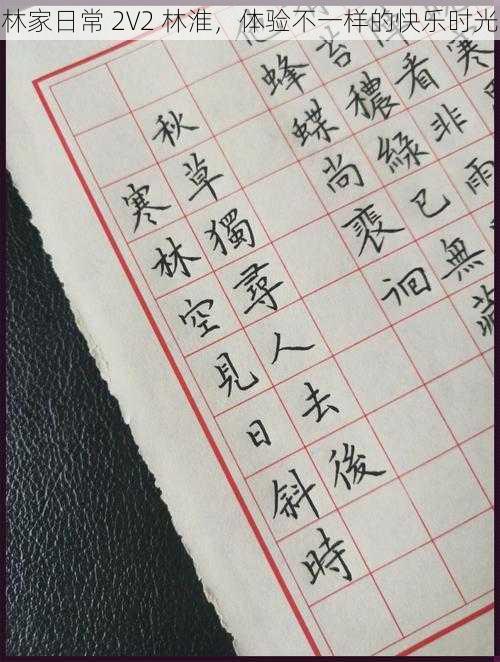 林家日常 2V2 林淮，体验不一样的快乐时光
寒
看非雨
苔穠綠已無
蜂蝶尚裴洄
秋草獨尋人去後
寒林空見日斜時